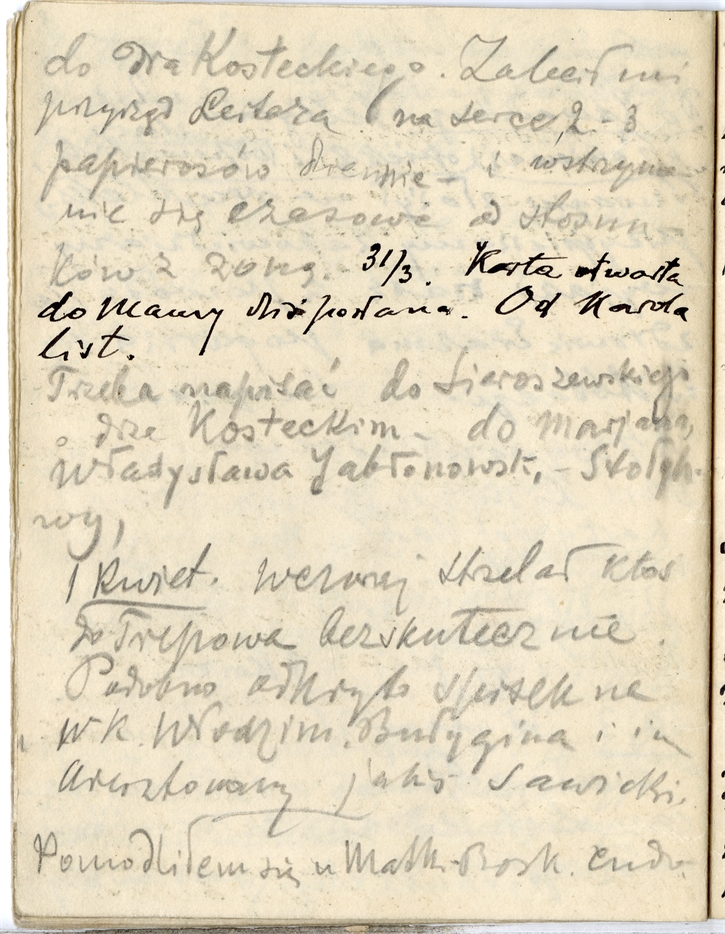 do Dra Kosteckiego. Zalecił mi
przyrząd Leitera (na serce, 2-3
papierosów dziennie - i wstrzyma-
nie się czasowe od stosun-
ków z żoną. 31/3. Karta otwarta
do Mamy dziś posłana. Od Karola
list.
Trzeba napisać do Sieroszewskiego
o drze Kosteckim - do Marjana,
Władysława Jabłonowsk., -
wy,
1 Kwiet. Wczoraj strzelał ktoś
do Trepowa bezskutecznie.
Podobno odkryto spisek na
W.K. Włodzim. Bułygina i in
Aresztowany jakiś Sawicki.
Pomodliłem się u Matki Bosk. Cudo-